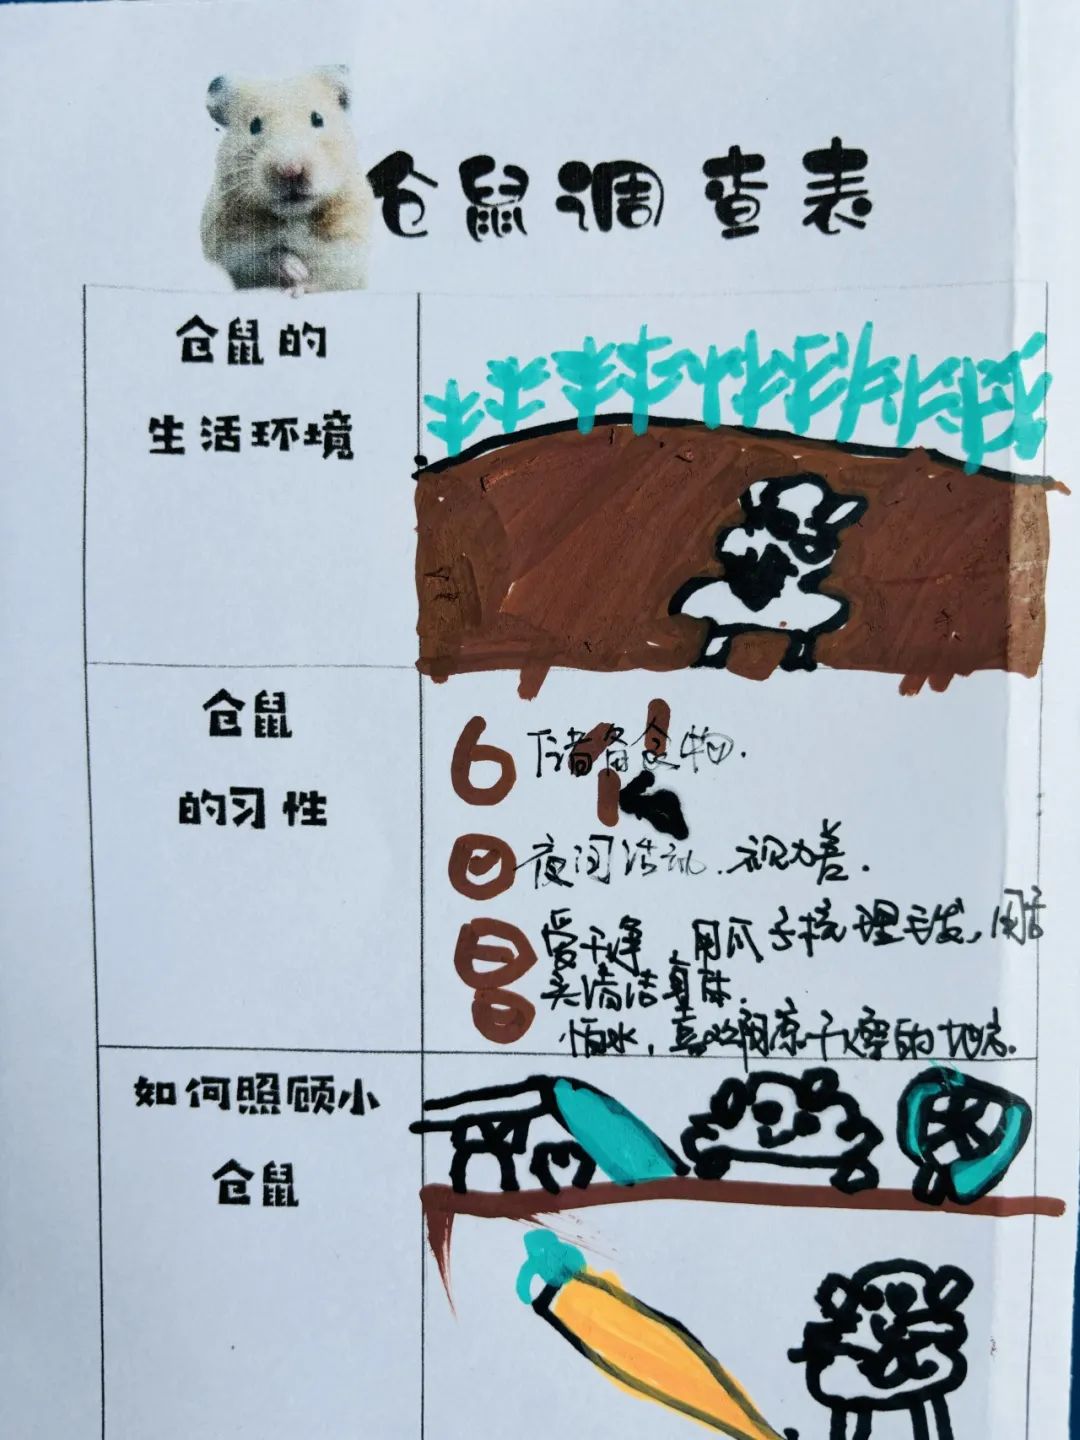 仓鼠调查表
仓鼠的
生活环境
仓鼠
的习性
储备食物.
夜间活动.视力差.
爱干净,用爪子梳理毛发,用舌
头清洁身体.
怕水,喜欢阴凉干燥的地方.
如何照顾小
仓鼠